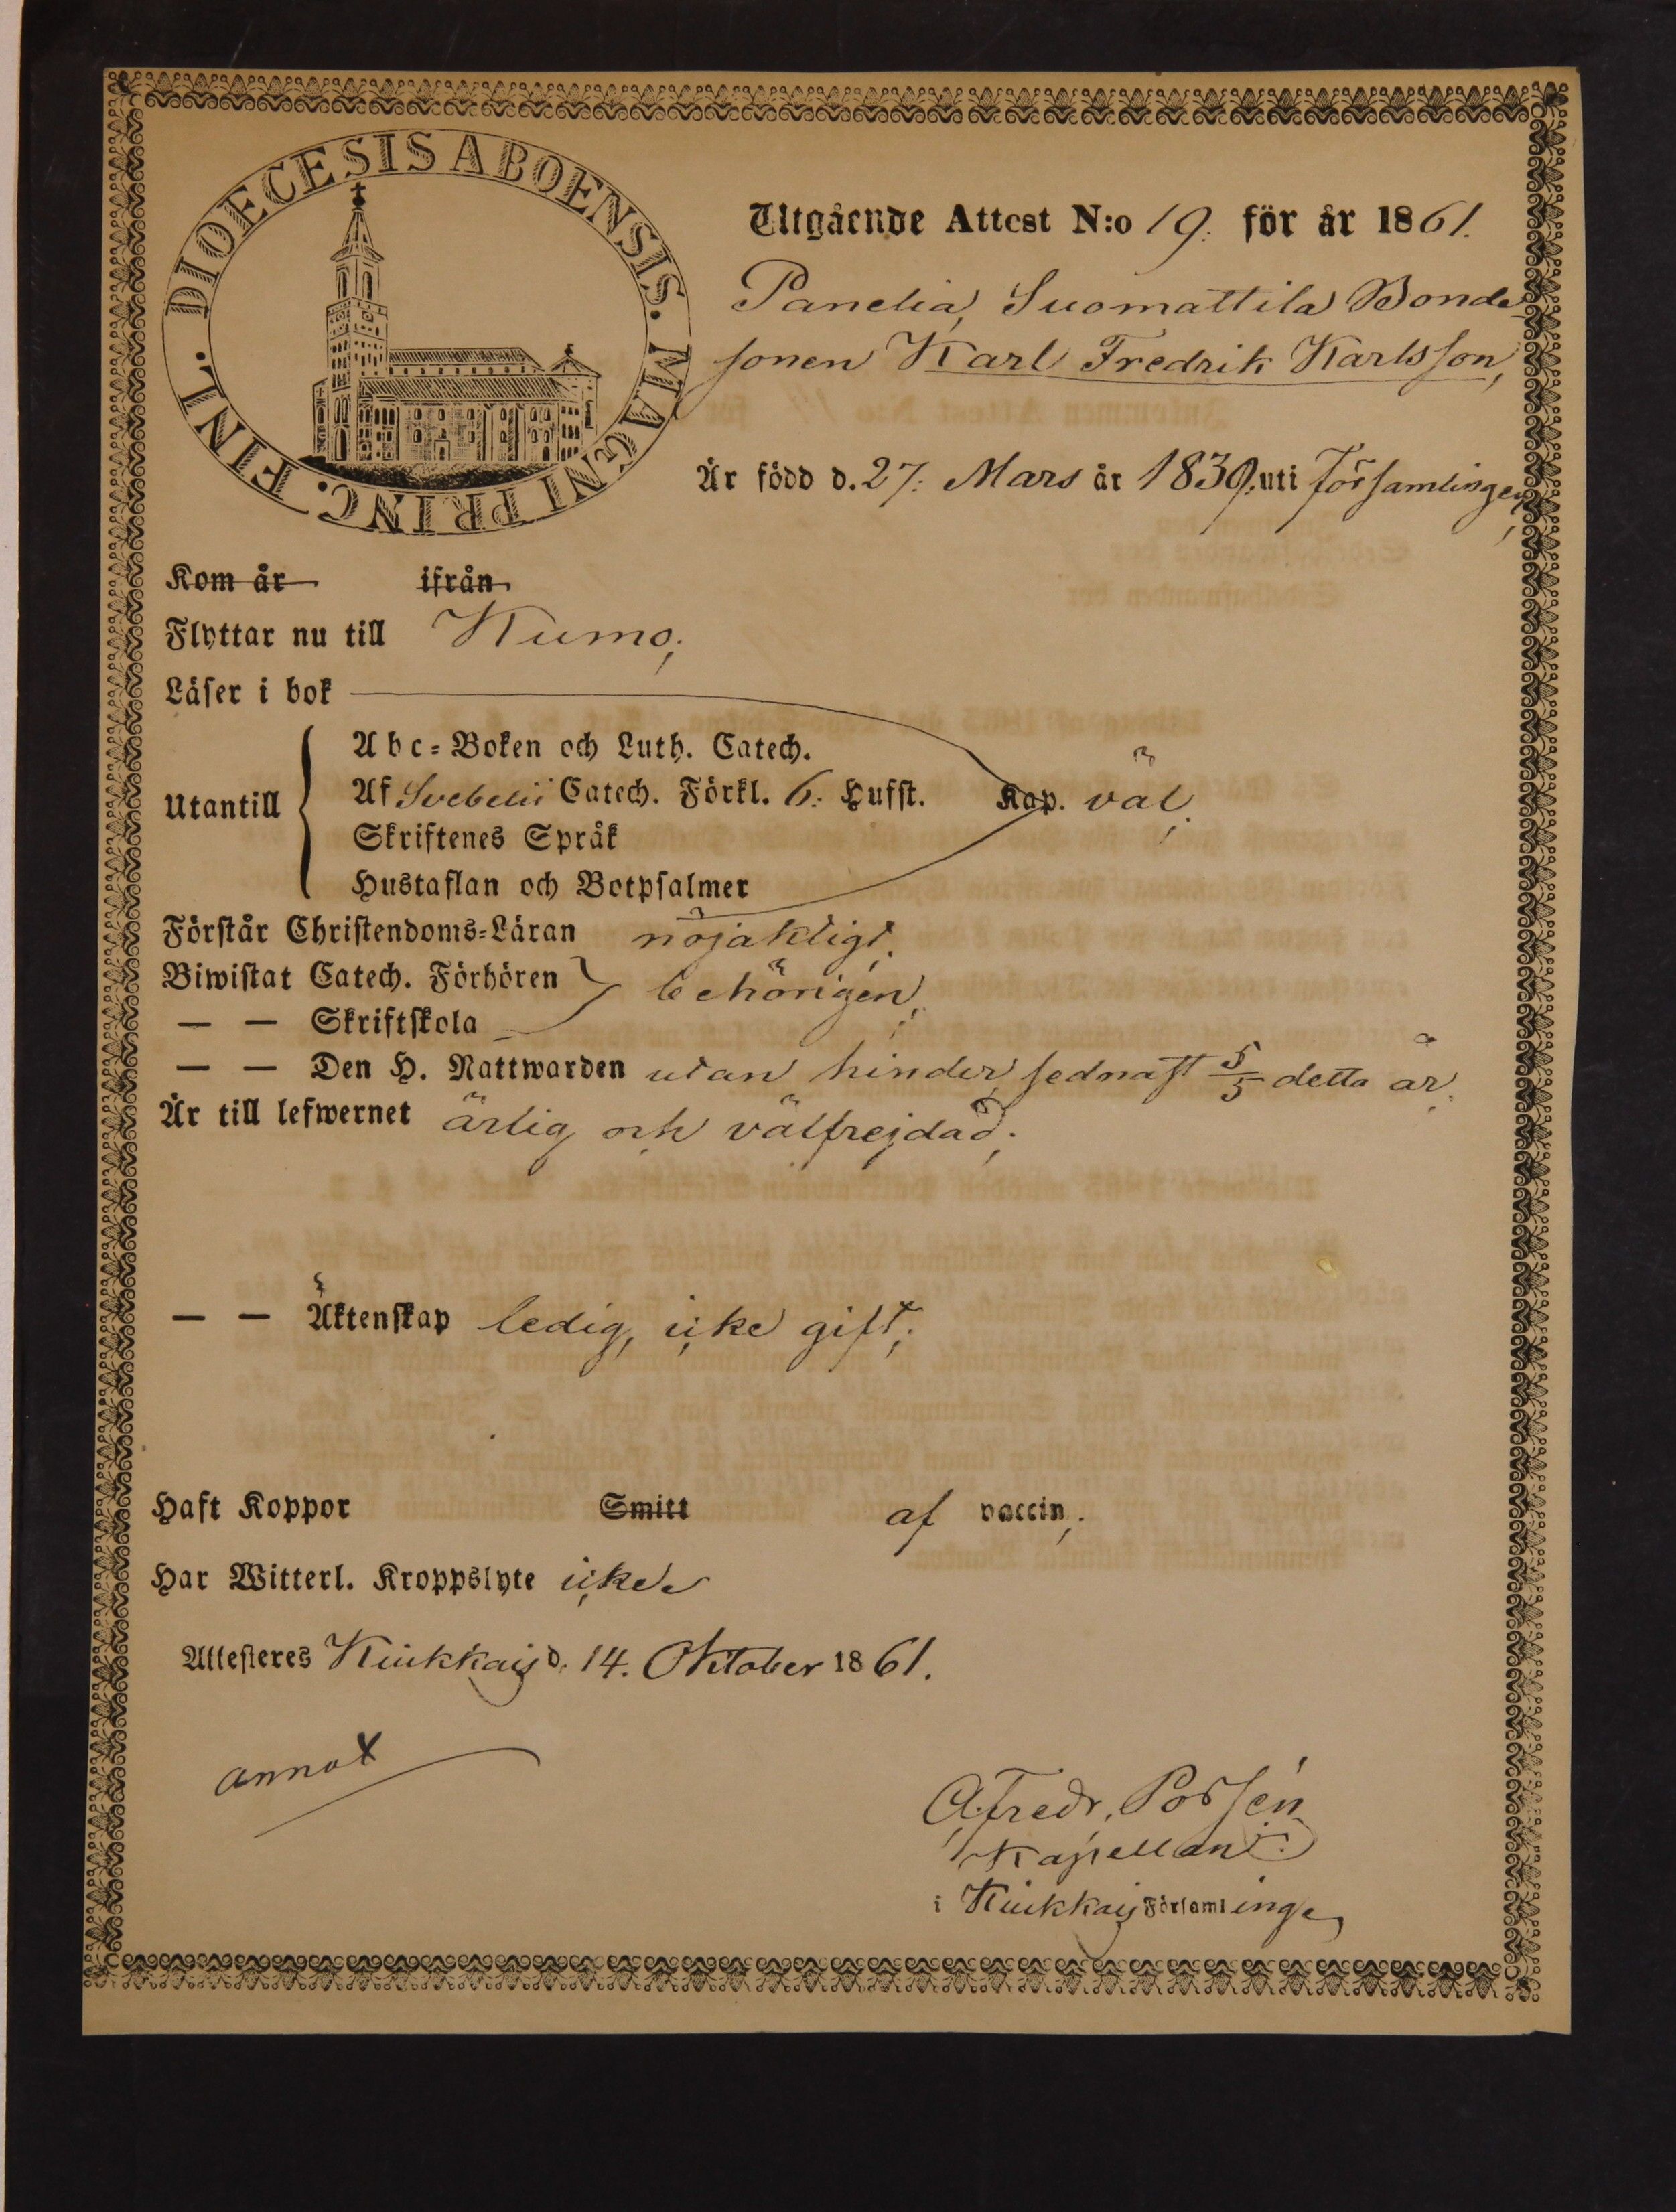 DIOECESIS ABOENSIS. MAGNI PRINC. FINL.
Utgående Attest N:o 19. för år 1861.
Panelia, Suomattila Bonde
sonen Karl Fredrik Karlsson,
Är född d. 27. Mars år 1839, uti församlingen,
Kom år ifrån
Flyttar nu till Kumo;
Läser i bok
Utantill
Abc-Boken och Luth. Catech.
Af Svebelii Catech. Förkl. 6. Hufst. Kap. väl.
Skriftenes Språk
Hustaflan och Botpsalmer
Förstår Christendoms-Läran nöjaktligt.
Biwistat Catech. Förhören behörigen,
— — Skriftskola
— — Den H. Nattwarden utan hinder, sednast 5/5 detta år.
Är till lefwernet ärlig och välfrejdad;
— — Äktenskap ledig, icke gift;
Haft Koppor Smitt af vaccin;
Har Witterl. Kroppslyte icke.
Attesteres Kiukkais d. 14. Oktober 1861.
annot
A. Fredr. Porsén
Kapellan.
i Kiukkais Församlinge